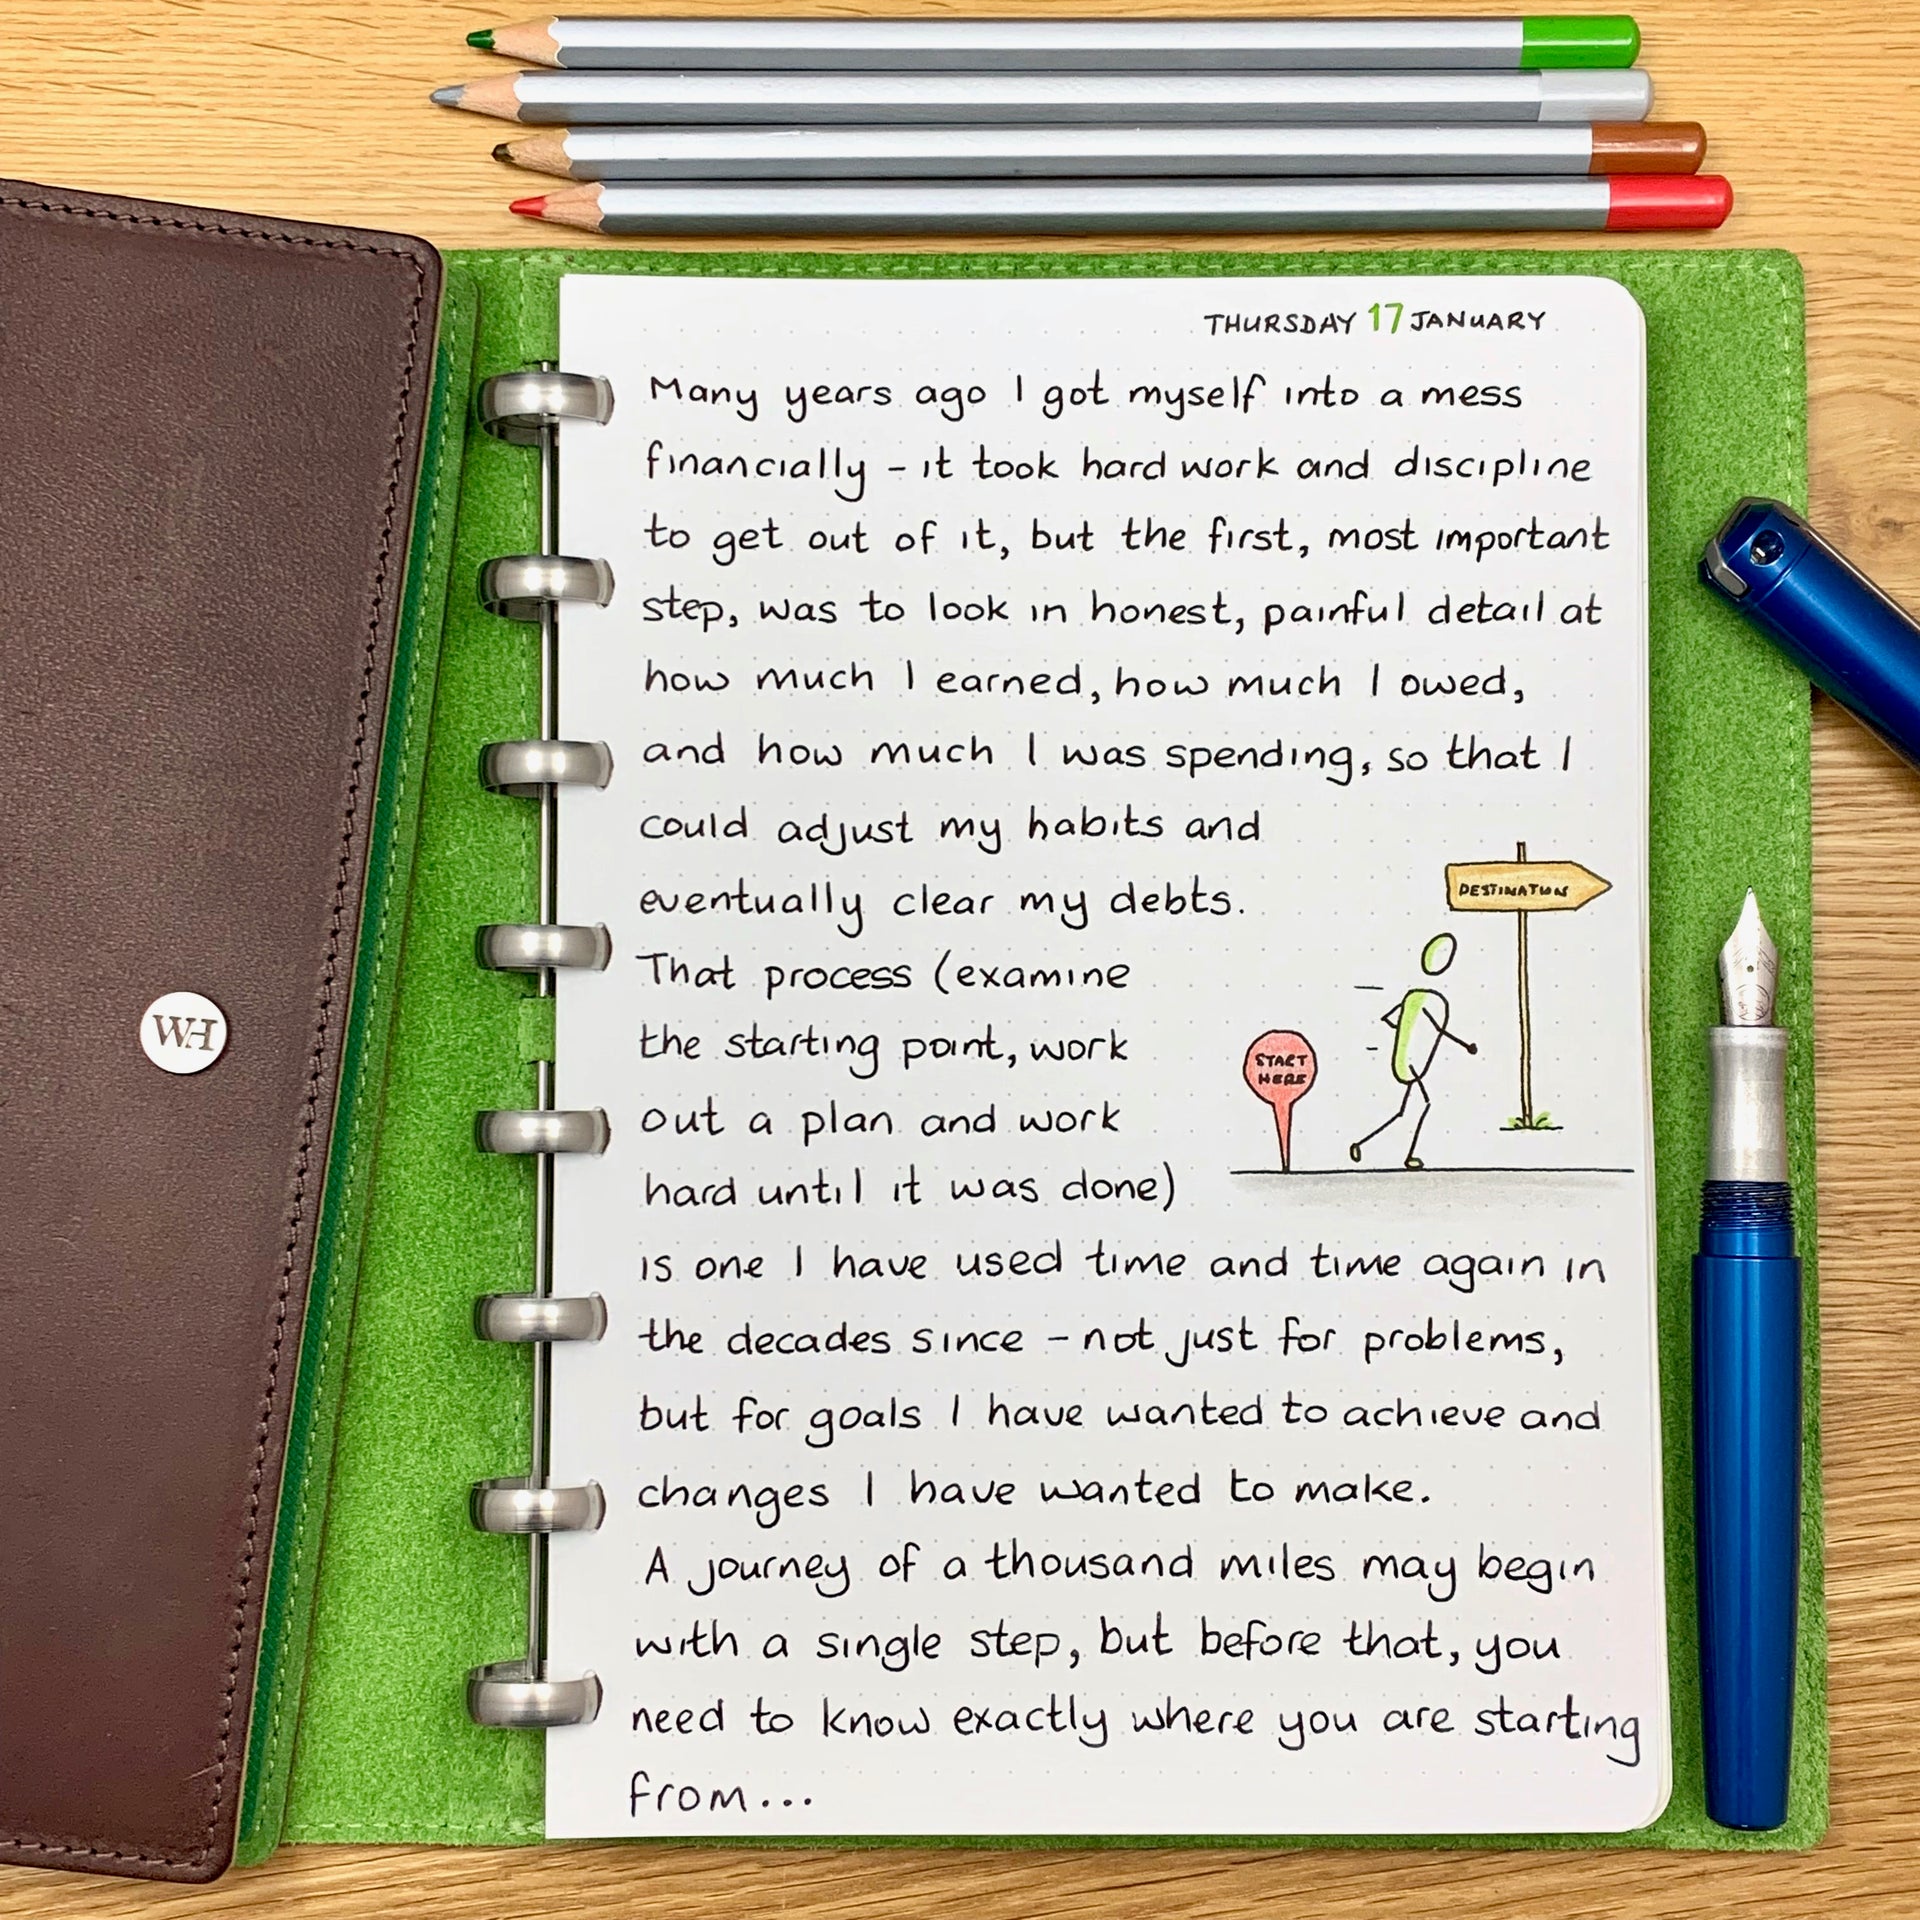 THURSDAY 17 JANUARY
Many years ago I got myself into a mess
financially - it took hard work and discipline
to get out of it, but the first, most important
step, was to look in honest, painful detail at
how much I earned, how much I owed,
and how much I was spending, so that I
could adjust my habits and
eventually clear my debts.
That process (examine
the starting point, work
out a plan and work
hard until it was done)
is one I have used time and time again in
the decades since - not just for problems,
but for goals I have wanted to achieve and
changes I have wanted to make.
A journey of a thousand miles may begin
with a single step, but before that, you
need to know exactly where you are starting
from...
DESTINATION
START
HERE
WH